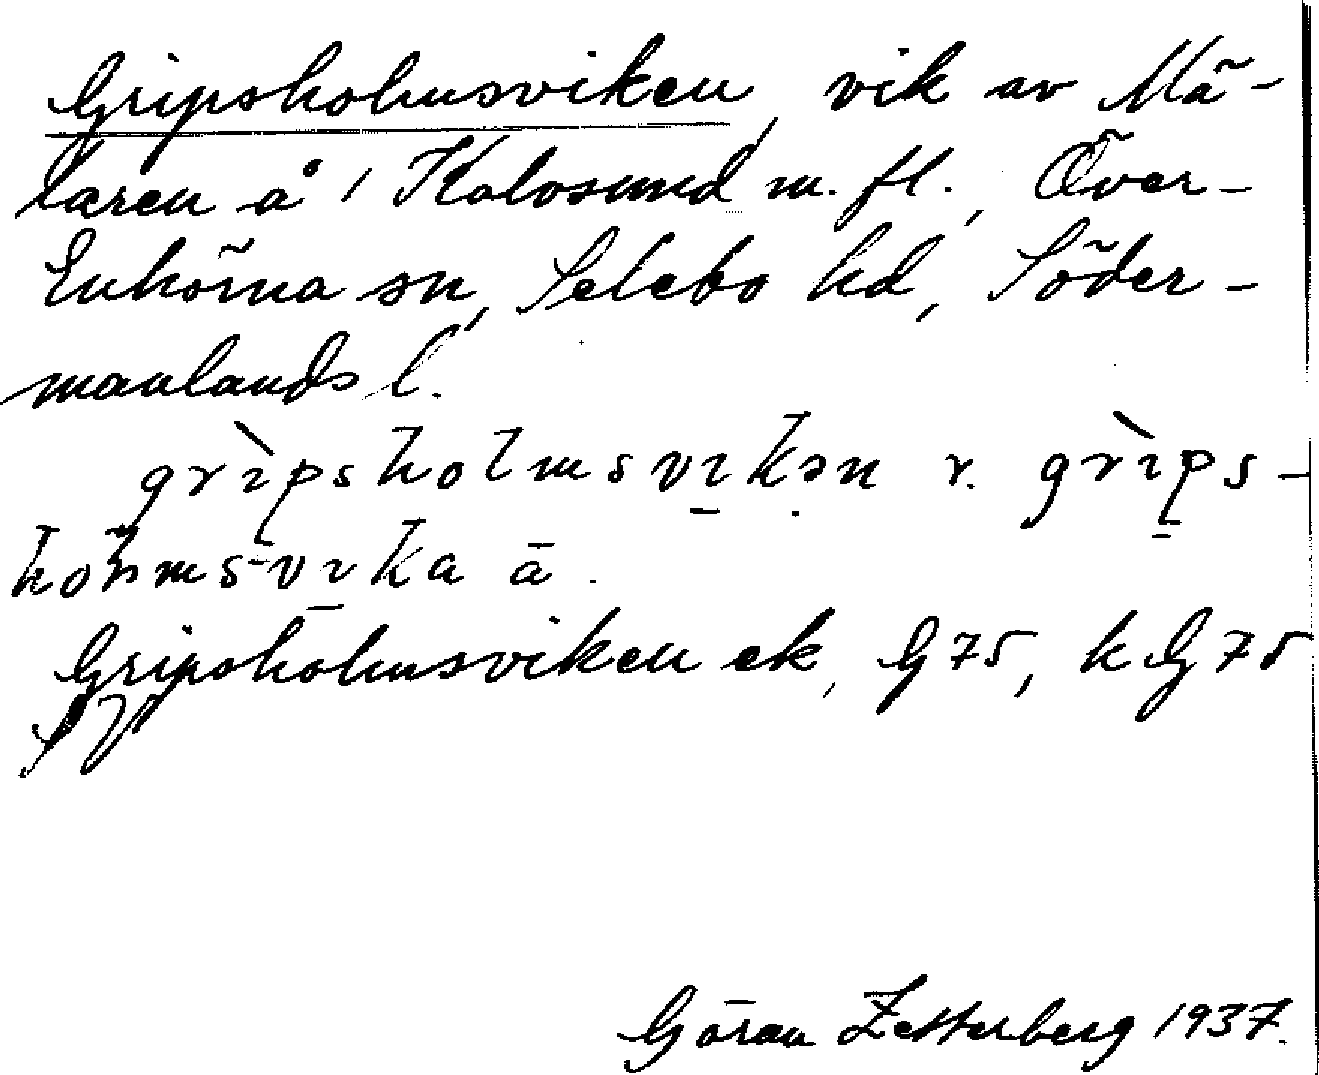 Gripsholmsviken, vik av Mä-
laren å 1 Kalvsund m. fl., Över-
Enhörna sn, Selebo hd, Söder-
manlands l.
grìpsholmsvıkən r. grìps-
hòlmsvıka ä.
Gripsholmsviken ek, G 75, k G 75
SV
Göran Zetterberg 1937.